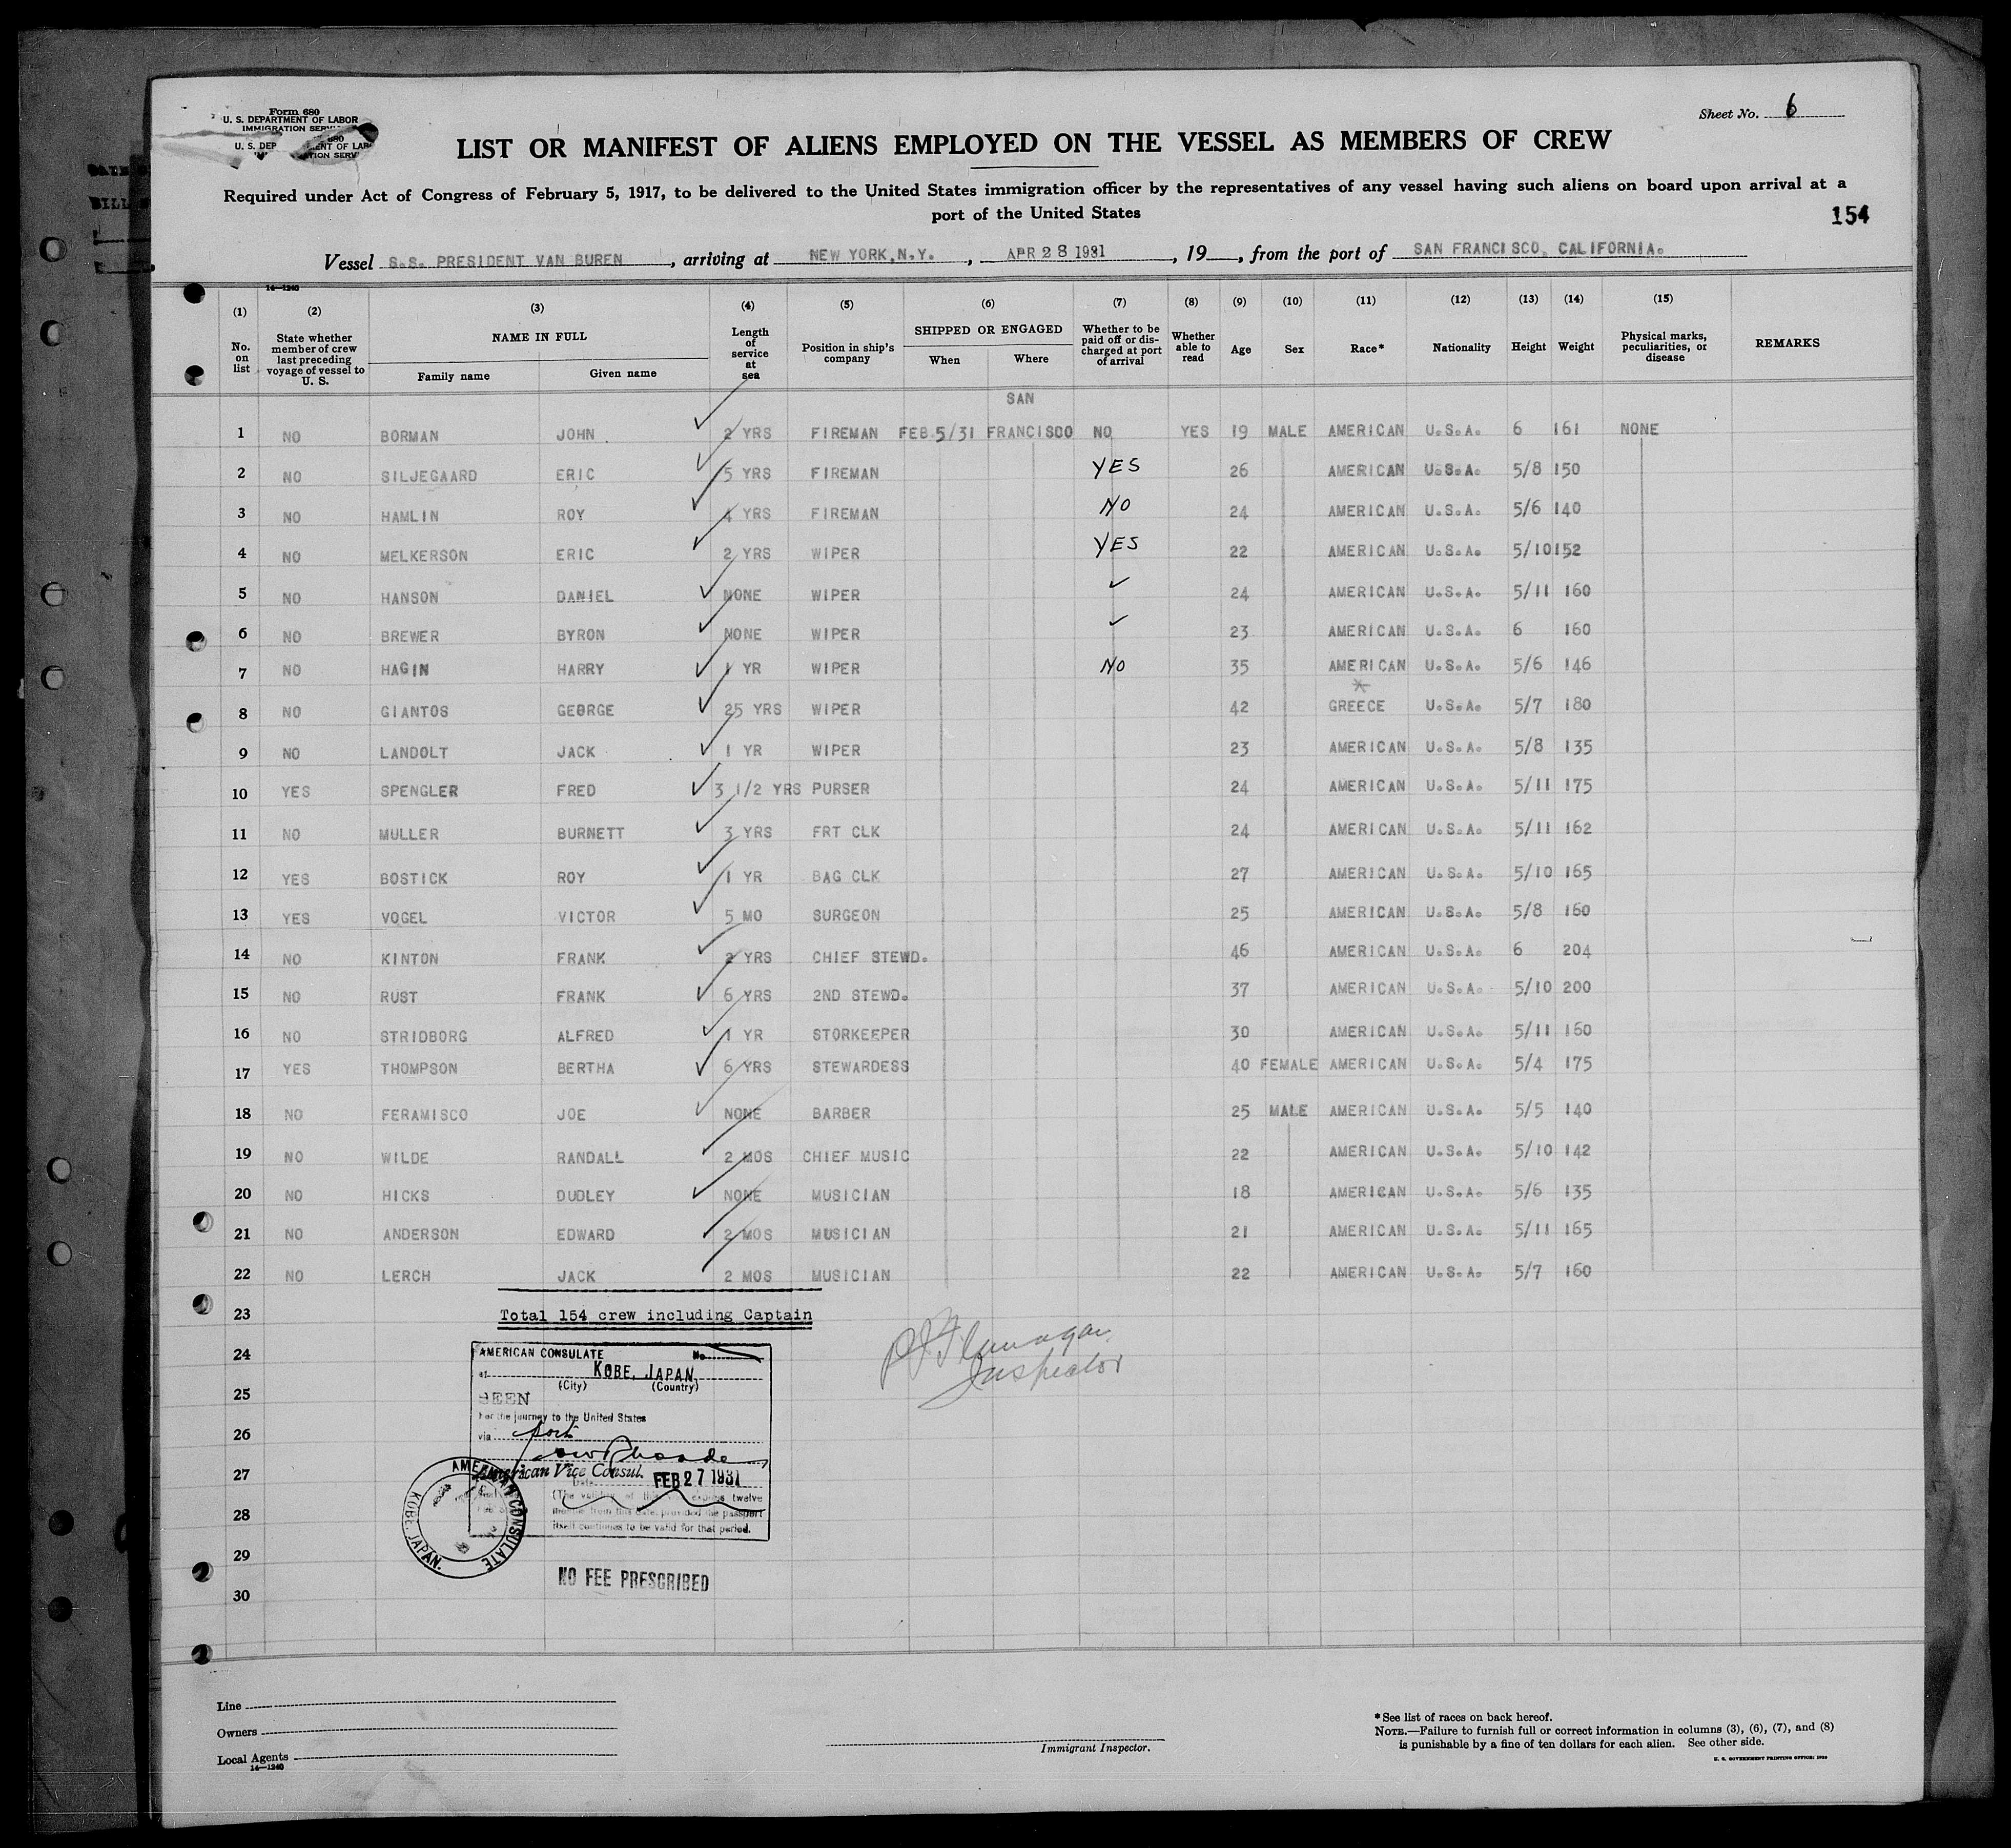 Form 680
U. S. DEPARTMENT OF LABOR
IMMIGRATION SERV
U. S. DEP
Sheet No. 6
LIST OR MANIFEST OF ALIENS EMPLOYED ON THE VESSEL AS MEMBERS OF CREW
Required under Act of Congress of February 5, 1917, to be delivered to the United States immigration officer by the representatives of any vessel having such aliens on board upon arrival at a
port of the United States
154
Vessel S.S. PRESIDENT VAN BUREN, arriving at NEW YORK, N.Y., APR 28 1931, 19__, from the port of SAN FRANCISCO, CALIFORNIA.
14—1240
(1) (2) (3) (4) (5) (6) (7) (8) (9) (10) (11) (12) (13) (14) (15)
No. on list
State whether member of crew last preceding voyage of vessel to U. S.
NAME IN FULL
Family name Given name
Length of service at sea
Position in ship's company
SHIPPED OR ENGAGED
When Where
Whether to be paid off or discharged at port of arrival
Whether able to read
Age Sex Race* Nationality Height Weight
Physical marks, peculiarities, or disease
REMARKS
SAN
1 NO BORMAN JOHN 2 YRS FIREMAN FEB 5/31 FRANCISCO NO YES 19 MALE AMERICAN U.S.A. 6 161 NONE
2 NO SILJEGAARD ERIC 5 YRS FIREMAN YES 26 AMERICAN U.S.A. 5/8 150
3 NO HAMLIN ROY 4 YRS FIREMAN NO 24 AMERICAN U.S.A. 5/6 140
4 NO MELKERSON ERIC 2 YRS WIPER YES 22 AMERICAN U.S.A. 5/10 152
5 NO HANSON DANIEL NONE WIPER ✓ 24 AMERICAN U.S.A. 5/11 160
6 NO BREWER BYRON NONE WIPER ✓ 23 AMERICAN U.S.A. 6 160
7 NO HAGIN HARRY 1 YR WIPER NO 35 AMERICAN U.S.A. 5/6 146
8 NO GIANTOS GEORGE 25 YRS WIPER 42 GREECE U.S.A. 5/7 180
9 NO LANDOLT JACK 1 YR WIPER 23 AMERICAN U.S.A. 5/8 135
10 YES SPENGLER FRED 3 1/2 YRS PURSER 24 AMERICAN U.S.A. 5/11 175
11 NO MULLER BURNETT 3 YRS FRT CLK 24 AMERICAN U.S.A. 5/11 162
12 YES BOSTICK ROY 1 YR BAG CLK 27 AMERICAN U.S.A. 5/10 165
13 YES VOGEL VICTOR 5 MO SURGEON 25 AMERICAN U.S.A. 5/8 160
14 NO KINTON FRANK 2 YRS CHIEF STEWD. 46 AMERICAN U.S.A. 6 204
15 NO RUST FRANK 6 YRS 2ND STEWD. 37 AMERICAN U.S.A. 5/10 200
16 NO STRIDBORG ALFRED 1 YR STORKEEPER 30 AMERICAN U.S.A. 5/11 160
17 YES THOMPSON BERTHA 6 YRS STEWARDESS 40 FEMALE AMERICAN U.S.A. 5/4 175
18 NO FERAMISCO JOE NONE BARBER 25 MALE AMERICAN U.S.A. 5/5 140
19 NO WILDE RANDALL 2 MOS CHIEF MUSIC 22 AMERICAN U.S.A. 5/10 142
20 NO HICKS DUDLEY NONE MUSICIAN 18 AMERICAN U.S.A. 5/6 135
21 NO ANDERSON EDWARD 2 MOS MUSICIAN 21 AMERICAN U.S.A. 5/11 165
22 NO LERCH JACK 2 MOS MUSICIAN 22 AMERICAN U.S.A. 5/7 160
23 Total 154 crew including Captain
24
25
26
27
28
29
30
P J Flanagan
Inspector
AMERICAN CONSULATE No.
at KOBE, JAPAN
(City) (Country)
SEEN
For the journey to the United States
via port
American Vice Consul. FEB 27 1931
Date
(The validity of this expires twelve
months from this date, provided the passport
itself continues to be valid for that period.
AMERICAN CONSULATE KOBE, JAPAN.
NO FEE PRESCRIBED
Line
Owners
Local Agents
14—1240
Immigrant Inspector.
*See list of races on back hereof.
NOTE.—Failure to furnish full or correct information in columns (3), (6), (7), and (8)
is punishable by a fine of ten dollars for each alien. See other side.
U. S. GOVERNMENT PRINTING OFFICE: 1929